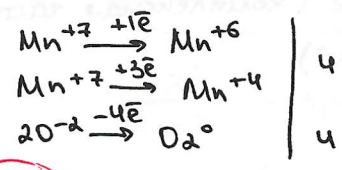 Mn⁺⁷ +1ē → Mn⁺⁶
Mn⁺⁷ +3ē → Mn⁺⁴ | 4
2O⁻² −4ē → O₂⁰ | 4